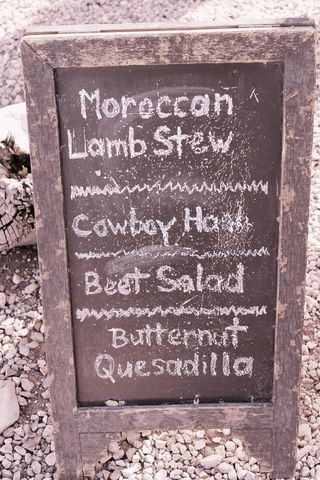 Moroccan
Lamb Stew
Cowboy Hash
Beet Salad
Butternut
Quesadilla